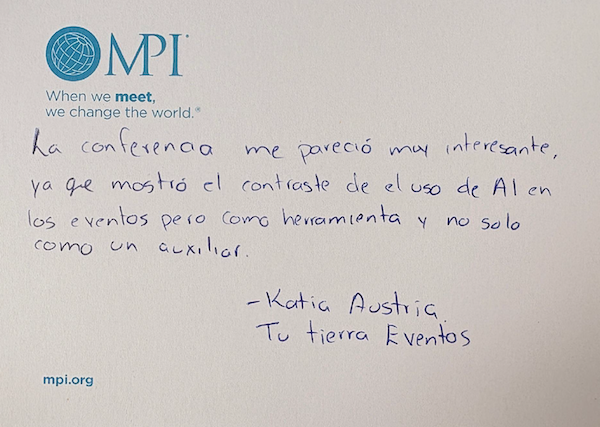 MPI®
When we meet,
we change the world.®
La conferencia me pareció muy interesante,
ya que mostró el contraste de el uso de AI en
los eventos pero como herramienta y no solo
como un auxiliar.
-Katia Austria.
Tu tierra Eventos
mpi.org